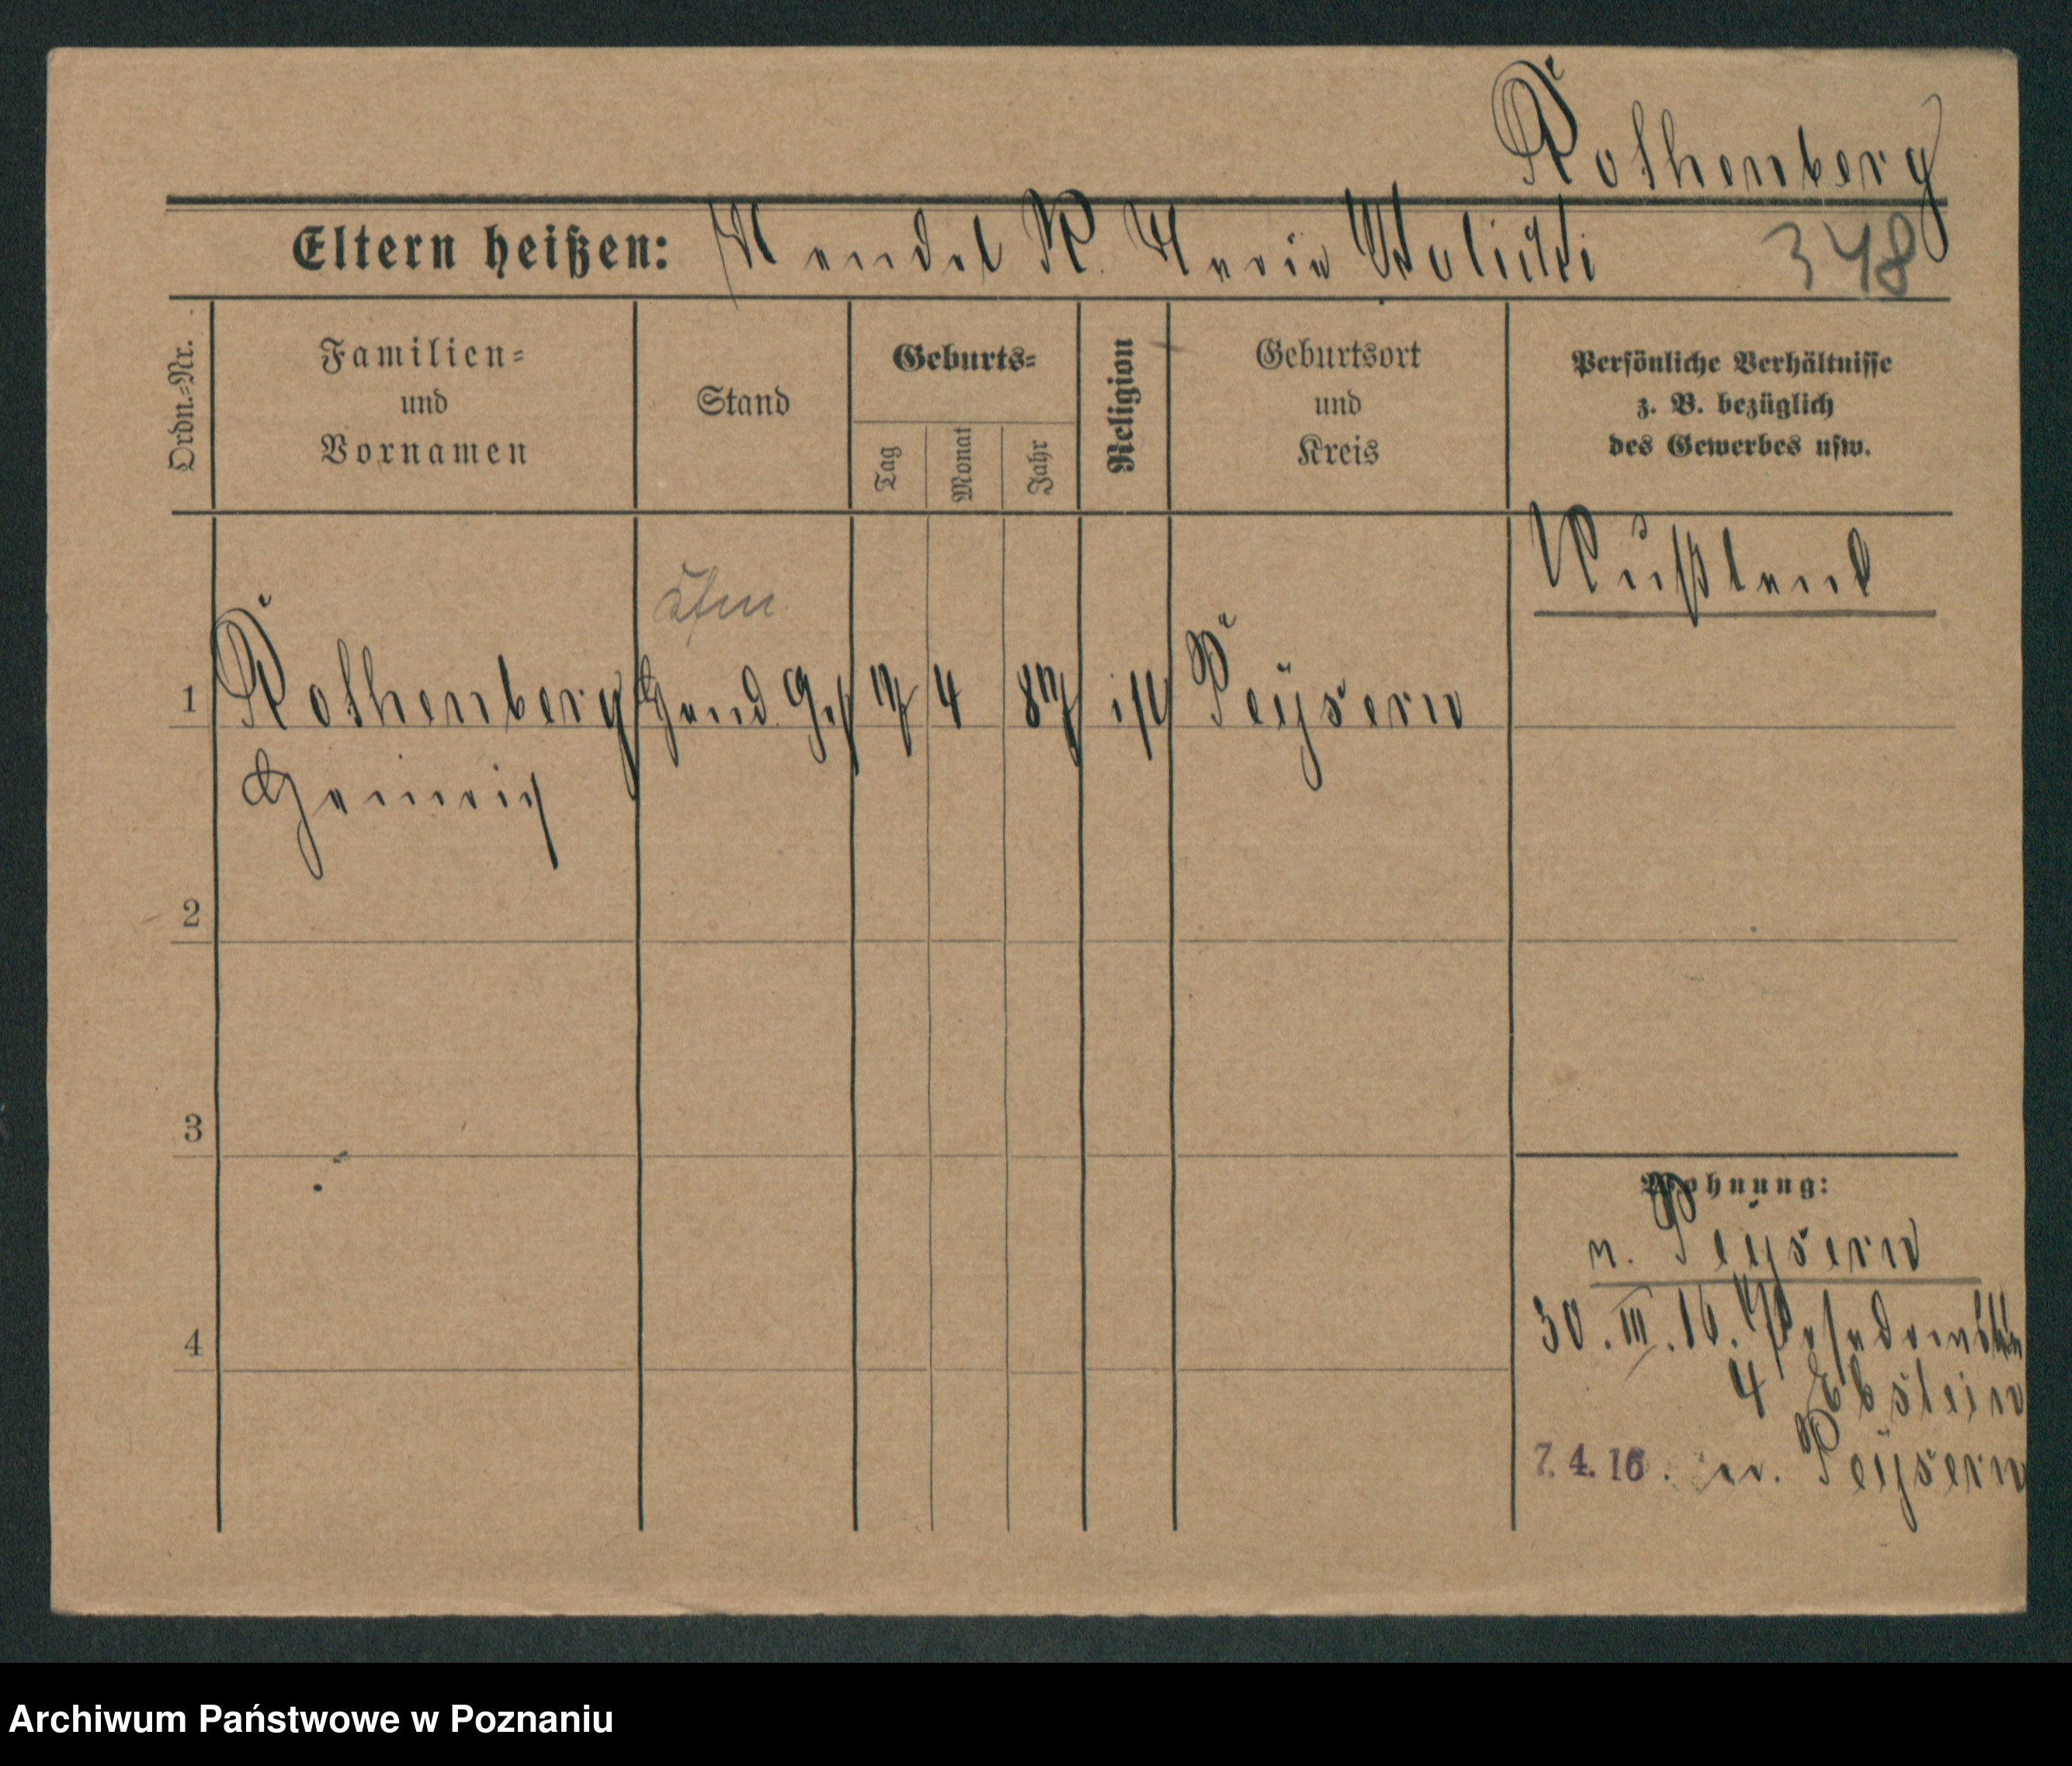 Rothenberg
Eltern heißen: Mendel R. Marie Wolicki 348
Ordn.=Nr.
Familien=
und
Vornamen
Stand
Geburts=
Tag
Monat
Jahr
Religion
Geburtsort
und
Kreis
Persönliche Verhältnisse
z. B. bezüglich
des Gewerbes usw.
Rußland
1 Rothenberg Hand. Geh 4 isr Peysern
Heinrich
2
3
Wohnung:
n. Peysern
30. III. 16.
4
4 Ebstein
7. 4. 16. n. Peysern
Archiwum Państwowe w Poznaniu